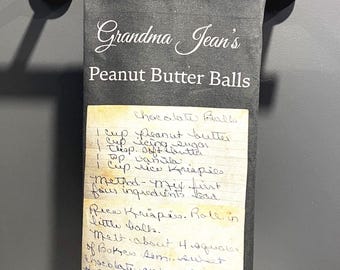 Grandma Jean's
Peanut Butter Balls
Chocolate Balls
1 cup peanut butter
1 cup icing sugar
1 tbsp. soft butter
1 tsp vanilla
1 cup rice Krispies
Method - Mix first
four ingredients
Rice Krispies. Roll in
little balls.
Melt about 4 squares
of Bakers Semi sweet
chocolate